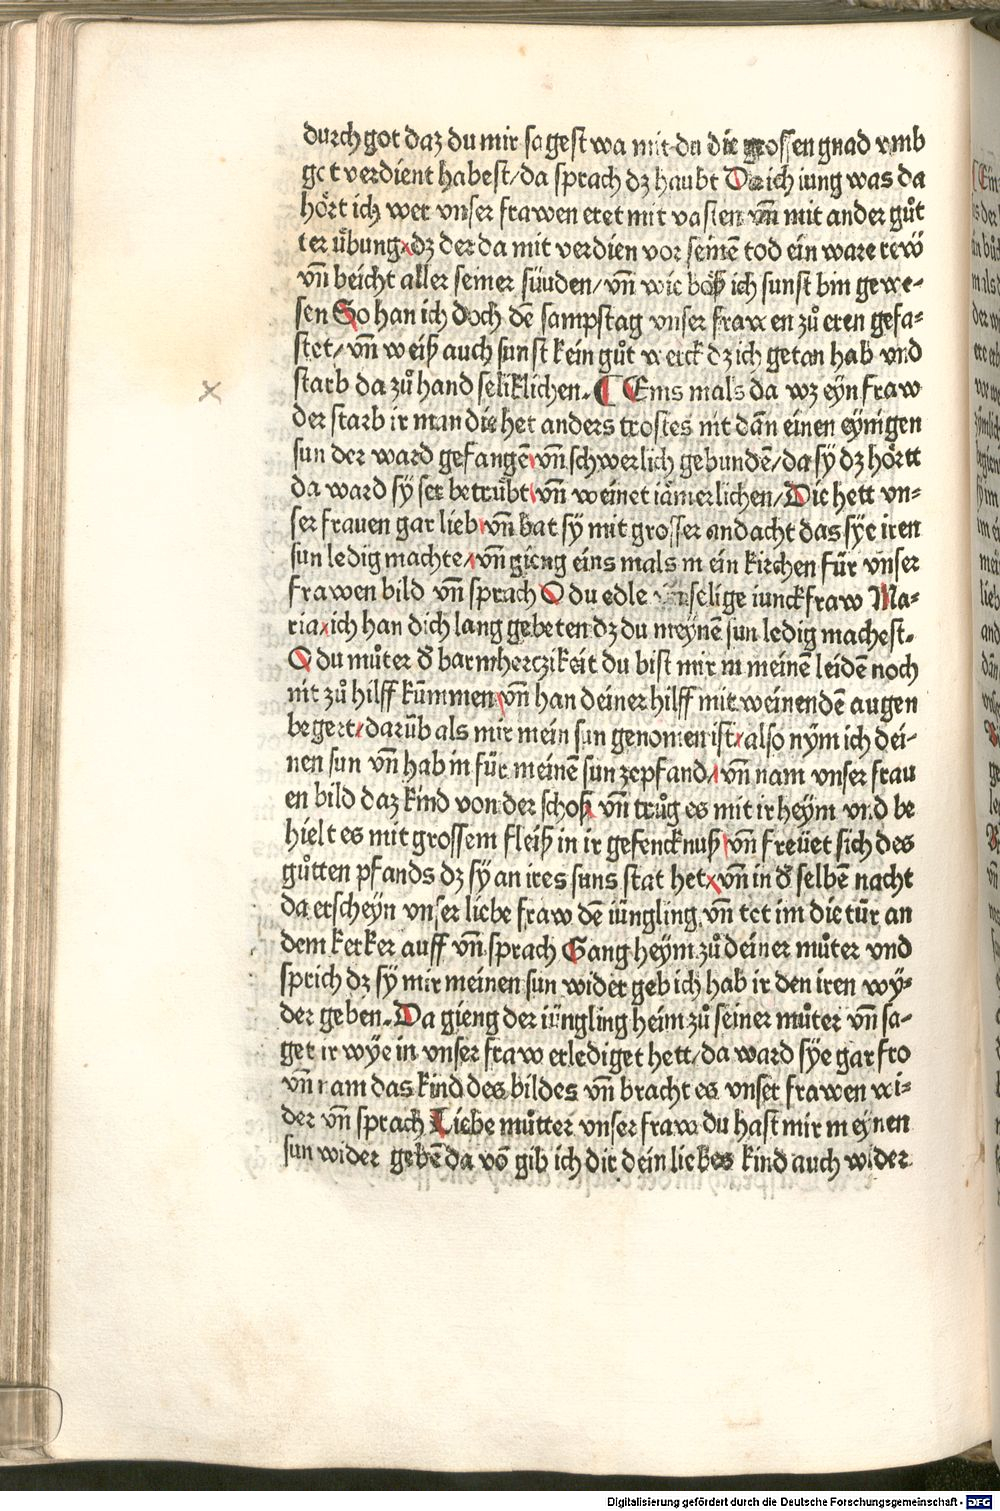 durch got daz du mir sagest wa mit du die grossen gnad vmb
got verdient habest/ da sprach dz haubt Da ich iung was da
hoͤrt ich wer vnser frawen eret mit vasten vn̄ mit ander guͦt
ter uͤbung dz der da mit verdien vor seinē tod ein ware rew
vn̄ beicht aller seiner suͤnden/ vn̄ wie boͤß ich sunst bin gewe-
sen So han ich doch dē sampstag vnser frawen zuͦ eren gefa-
stet/ vn̄ weiß auch sunst kein guͦt werck dz ich getan hab vnd
starb da zuͦ hand seliklichen. ¶ Eins mals da wz eyn fraw
der starb ir man die het anders trostes nit dān einen eynigen
sun der ward gefangē vn̄ schwerlich gebundē/ da sÿ dz hoͤrtt
da ward sÿ ser betruͤbt vn̄ weinet iaͤmerlichen/ Die hett vn-
ser frauen gar lieb vn̄ bat sÿ mit grosser andacht das sÿe iren
sun ledig machte/ vn̄ gieng eins mals in ein kirchen fuͤr vnser
frawen bild vn̄ sprach O du edle selige iunckfraw Ma-
ria ich han dich lang gebeten dz du meynē sun ledig machest.
O du muͦter d̄ barmherczikeit du bist mir in meinē leidē noch
nit zuͦ hilff kūmmen vn̄ han deiner hilff mit weinendē augen
begert/ darūb als mir mein sun genomen ist/ also nym ich dei-
nen sun vn̄ hab in fuͤr meinē sun ze pfand/ vn̄ nam vnser frau
en bild daz kind von der schoß vn̄ truͦg es mit ir heym vnd be
hielt es mit grossem fleiß in ir gefencknuß vn̄ freuͤet sich des
guͦtten pfands dz sÿ an ires suns stat het vn̄ in d̄ selbē nacht
da erscheyn vnser liebe fraw dē iuͤngling vn̄ tet im die tuͤr an
dem kerker auff vn̄ sprach Gang heym zuͦ deiner muͦter vnd
sprich dz sÿ mir meinen sun wider geb ich hab ir den iren wÿ-
der geben. Da gieng der iuͤngling heim zuͦ seiner muͦter vn̄ sa-
get ir wÿe in vnser fraw erlediget hett/ da ward sÿe gar fro
vn̄ nam das kind des bildes vn̄ bracht es vnser frawen wi-
der vn̄ sprach Liebe muͦtter vnser fraw du hast mir meynen
sun wider gebē da vō gib ich dir dein liebes kind auch wider
Digitalisierung gefördert durch die Deutsche Forschungsgemeinschaft - DFG